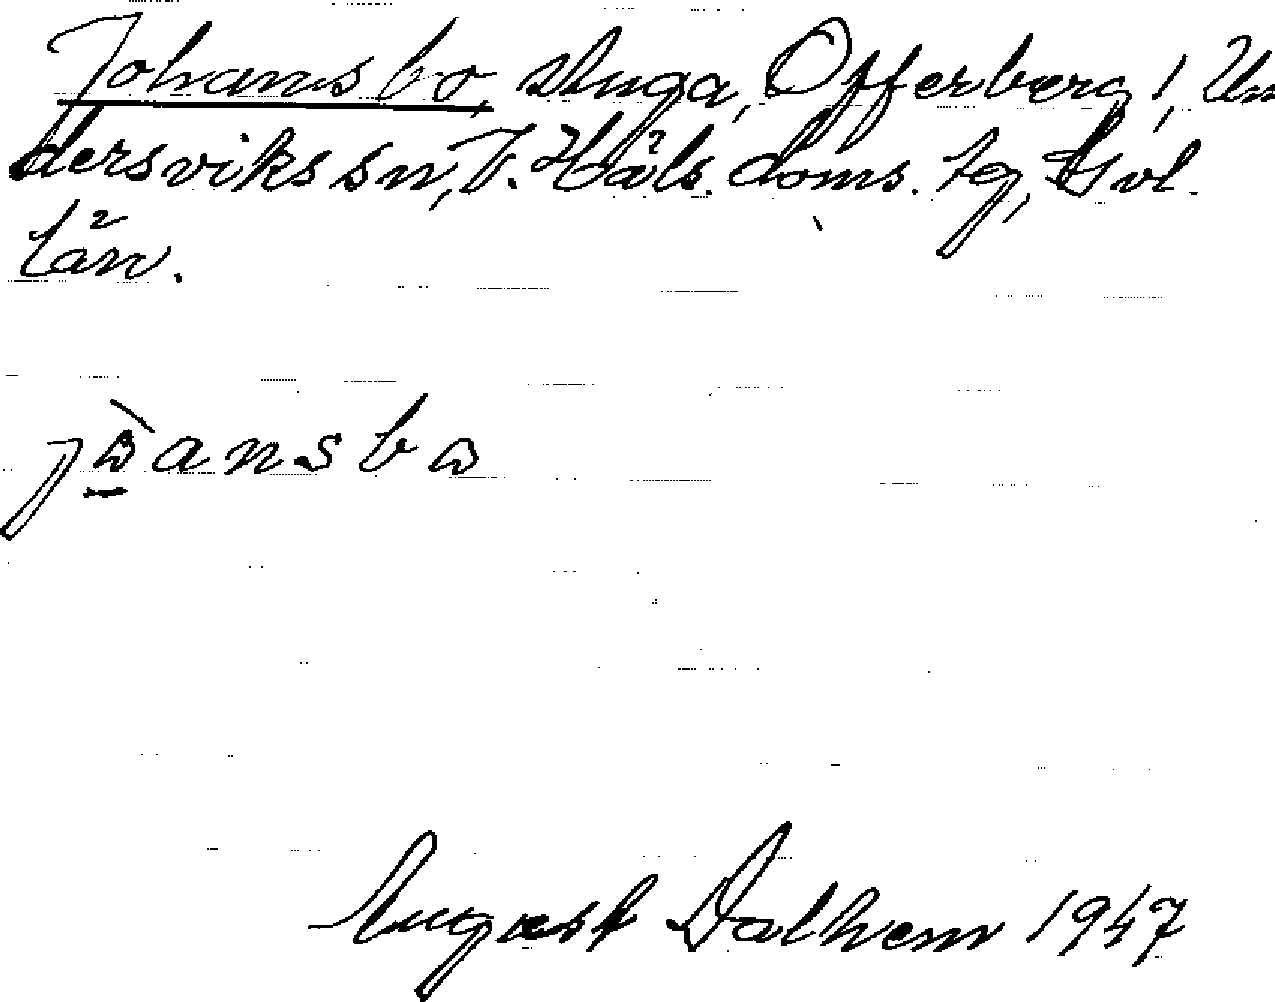 Johannsbo, stuga, Offerberg 1, Un
dersviks sn, V. Häls. doms. tg, Gvl.
län.
jὼansbω
August Dalhem 1947